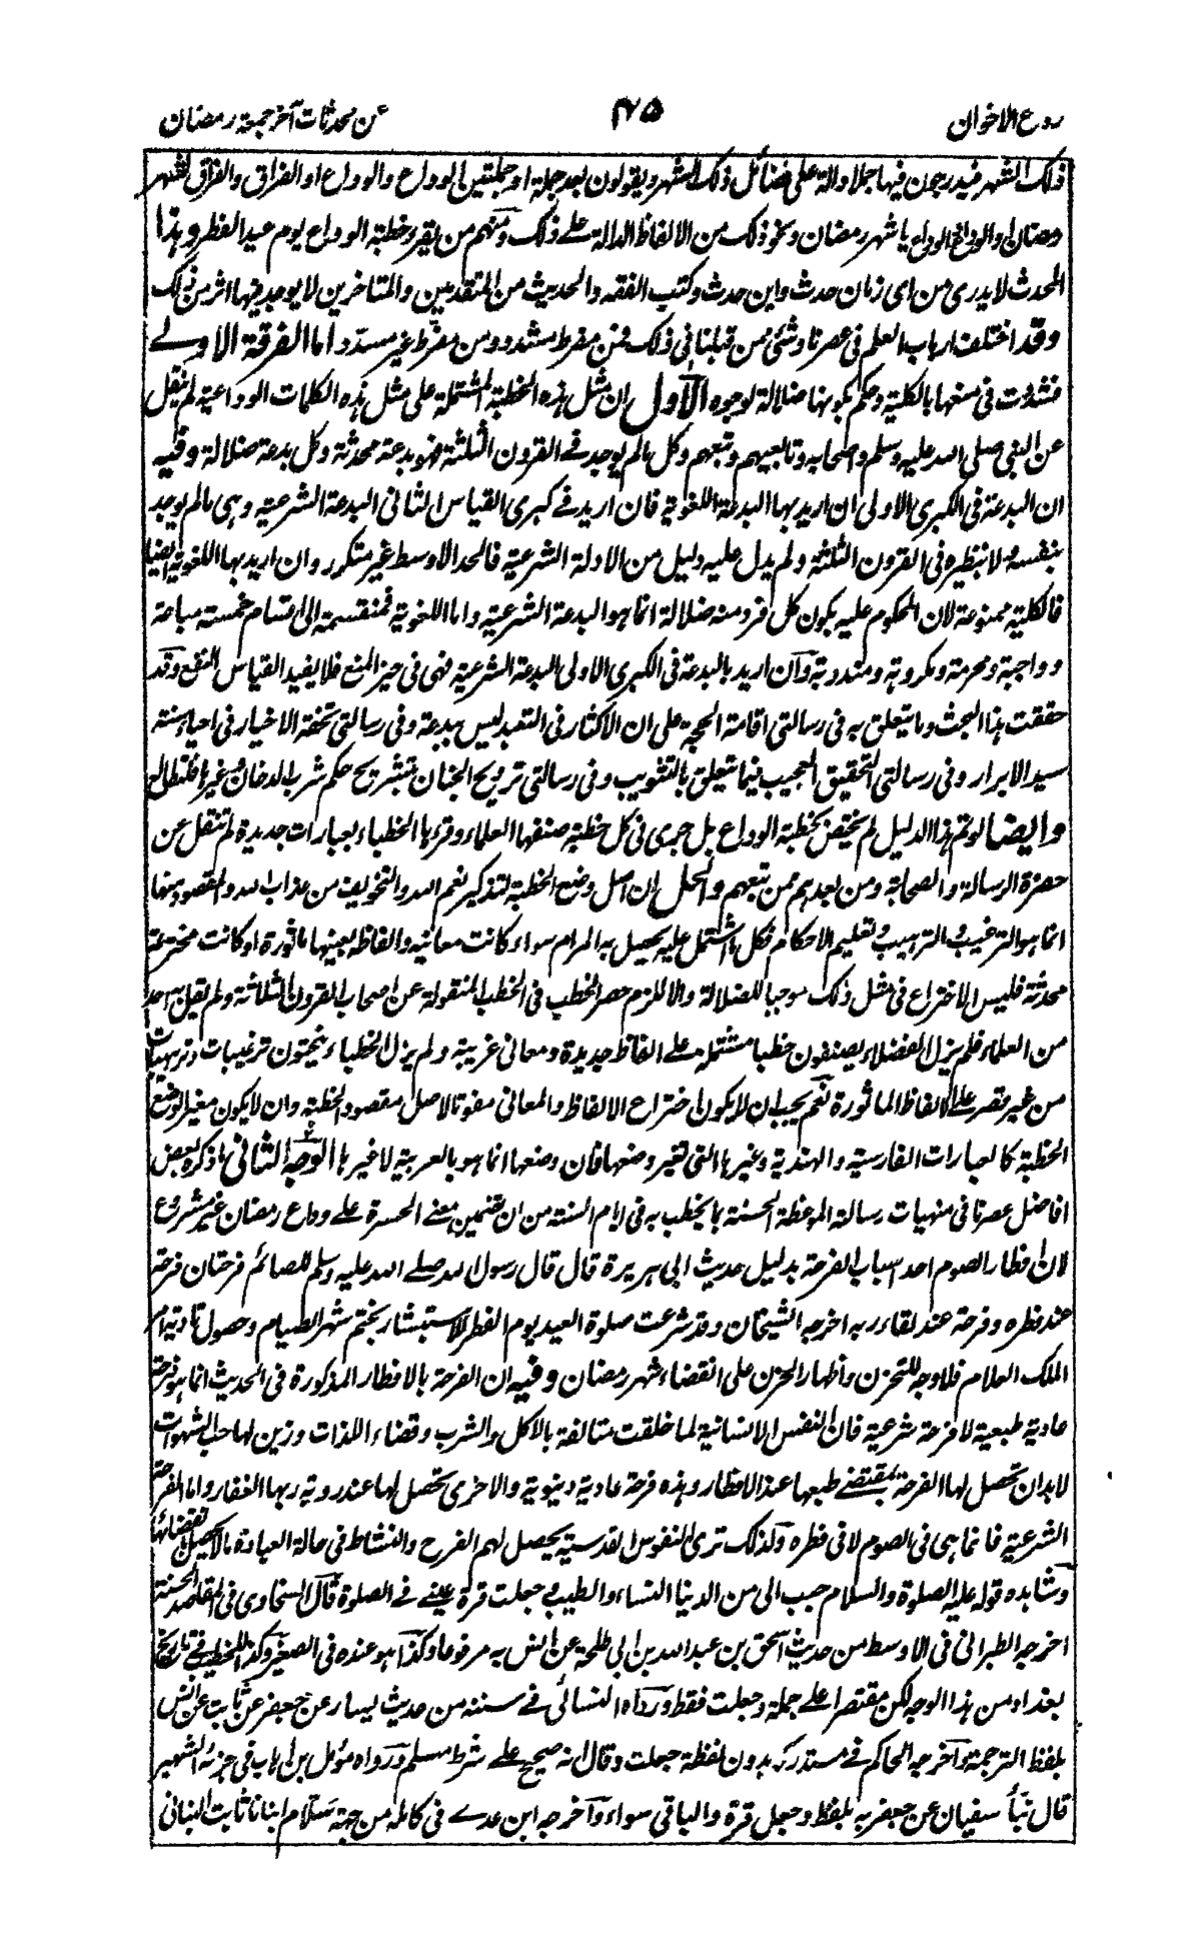 ردع الاخوان ٤٧٥ عن محدثات آخر جمعة رمضان
ذلك الشهر فيدرجون فيها جملا دالة على فضائل ذلك الشهر ويقولون بعد جملة او جملتين الوداع والوداع او الفراق والفراق لشهر
رمضان او الوداع الوداع يا شهر رمضان ونحو ذلك من الالفاظ الدالة على ذلك ومنهم من يقرء خطبة الوداع يوم عيد الفطر وهذا
المحدث لا يدرى من اى زمان حدث واين حدث وكتب الفقه والحديث من المتقدمين والمتاخرين لا يوجد فيها اثر من ذلك
وقد اختلف ارباب العلم فى عصرنا وشئ ممن قبلنا فى ذلك فمن مفرط مشدد ومن مفرط غير مسدد اما الفرقة الاولى
فشددت فى منعها بالكلية وحكم بكونها ضلالة لوجوه الاول ان مثل هذه الخطبة المشتملة على مثل هذه الكلمات الوداعية لم ينقل
عن النبى صلى الله عليه وسلم واصحابه وتابعيهم وتبعهم وكل ما لم يوجد فى القرون الثلثة فهو بدعة محدثة وكل بدعة ضلالة وفيه
ان البدعة فى الكبرى الاولى ان اريد بها البدعة اللغوية فان اريد فى كبرى القياس الثانى البدعة الشرعية وهى ما لم يوجد
بنفسه ولا بنظيره فى القرون الثلثة ولم يدل عليه دليل من الادلة الشرعية فالحد الاوسط غير متكرر وان اريد بها اللغوية ايضا
فالكلية ممنوعة لان المحكوم عليه بكون كل فرد منه ضلالة انما هو البدعة الشرعية واما اللغوية فمنقسمة الى اقسام خمسة مباحة
وواجبة ومحرمة ومكروهة ومندوبة وان اريد بالبدعة فى الكبرى الاولى البدعة الشرعية فهى فى حيز المنع فلا يفيد القياس النفع وقد
حققت هذا البحث وما يتعلق به فى رسالتى اقامة الحجة على ان الاكثار فى التعبد ليس ببدعة وفى رسالتى تحفة الاخيار فى احياء سنة
سيد الابرار وفى رسالتى التحقيق العجيب فيما يتعلق بالتثويب وفى رسالتى ترويح الجنان بتشريح حكم شرب الدخان وغيرها فلتطالع
وايضا لو تم هذا الدليل لم يختص بخطبة الوداع بل جرى فى كل خطبة صنفها العلماء وقرءها الخطباء بعبارات جديدة لم تنقل عن
حضرة الرسالة والصحابة ومن بعدهم ممن تبعهم والحل ان اصل وضع الخطبة لتذكير نعم الله والتخويف من عذاب الله والمقصود منها
انما هو الترغيب والترهيب وتعليم الاحكام فكل ما اشتمل عليه يحصل به المرام سواء كانت معانيه والفاظه بعينها ماثورة او كانت مخترعة
محدثة فليس الاختراع فى مثل ذلك موجبا للضلالة والا للزم حصر الخطب فى الخطب المنقولة عن اصحاب القرون الثلاثة ولم يقل به احد
من العلماء فلم يزل الفضلاء يصنفون خطبا مشتملة على الفاظ جديدة ومعانى غريبة ولم يزل الخطباء ينحتون ترغيبات وترهيبات
من غير قصر على الالفاظ الماثورة نعم يجب ان لا يكون اختراع الالفاظ والمعانى مفوتا لاصل مقصود الخطبة وان لا يكون مغير الوضع
الخطبة كالعبارات الفارسية والهندية وغيرها التى تغير وضعها فان وضعها انما هو بالعربية لا غيرها الوجه الثانى ما ذكره بعض
افاضل عصرنا فى منهيات رسالة الموعظة الحسنة بما يخطب به فى ايام السنة من ان تضمين معنى الحسرة على وداع رمضان غير مشروع
لان افطار الصوم احد اسباب الفرحة بدليل حديث ابى هريرة قال قال رسول الله صلى الله عليه وسلم للصائم فرحتان فرحة
عند فطره وفرحة عند لقاء ربه اخرجه الشيخان وقد شرعت صلوة العيد يوم الفطر للاستبشار بختم شهر الصيام وحصول تادية امر
الملك العلام فلا وجه للتحزن واظهار الحزن على انقضاء شهر رمضان وفيه ان الفرحة بالافطار المذكورة فى الحديث انما هو فرحة
عادية طبعية لا فرحة شرعية فان النفس الانسانية لما خلقت متالفة بالاكل والشرب وقضاء اللذات وزين لها حب الشهوات
لا بد ان تحصل لها الفرحة بمقتضى طبعها عند الافطار وهذه فرحة عادية دينوية والاخرى تحصل لها عند روية ربها الغفار واما الفرحة
الشرعية فانما هى فى الصوم لا فى فطره ولذلك ترى النفوس القدسية يحصل لهم الفرح والنشاط فى حالة العبادة ما لا يحصل بانقضائها
وشاهده قوله عليه الصلوة والسلام حبب الى من الدنيا النساء والطيب وجعلت قرة عينى فى الصلوة قال السخاوى فى المقاصد الحسنة
اخرجه الطبرانى فى الاوسط من حديث اسحق بن عبد الله بن ابى طلحة عن انس به مرفوعا وكذا هو عنده فى الصغير وكذا الخطيب فى تاريخ
بغداد من هذا الوجه لكن مقتصرا على جملة وجعلت فقط ورواه النسائى فى سننه من حديث يسار عن جعفر عن ثابت عن انس
بلفظ الترجمة وآخرجه الحاكم فى مستدركه بدون لفظة جعلت وقال انه صحيح على شرط مسلم ورواه مؤمل بن اهاب فى جزئه الشهير
قال نبأ سفيان عن جعفر به بلفظ وجعل قرة والباقى سواء وآخرجه ابن عدى فى كامله من جهة سلام انبانا ثابت البنانى